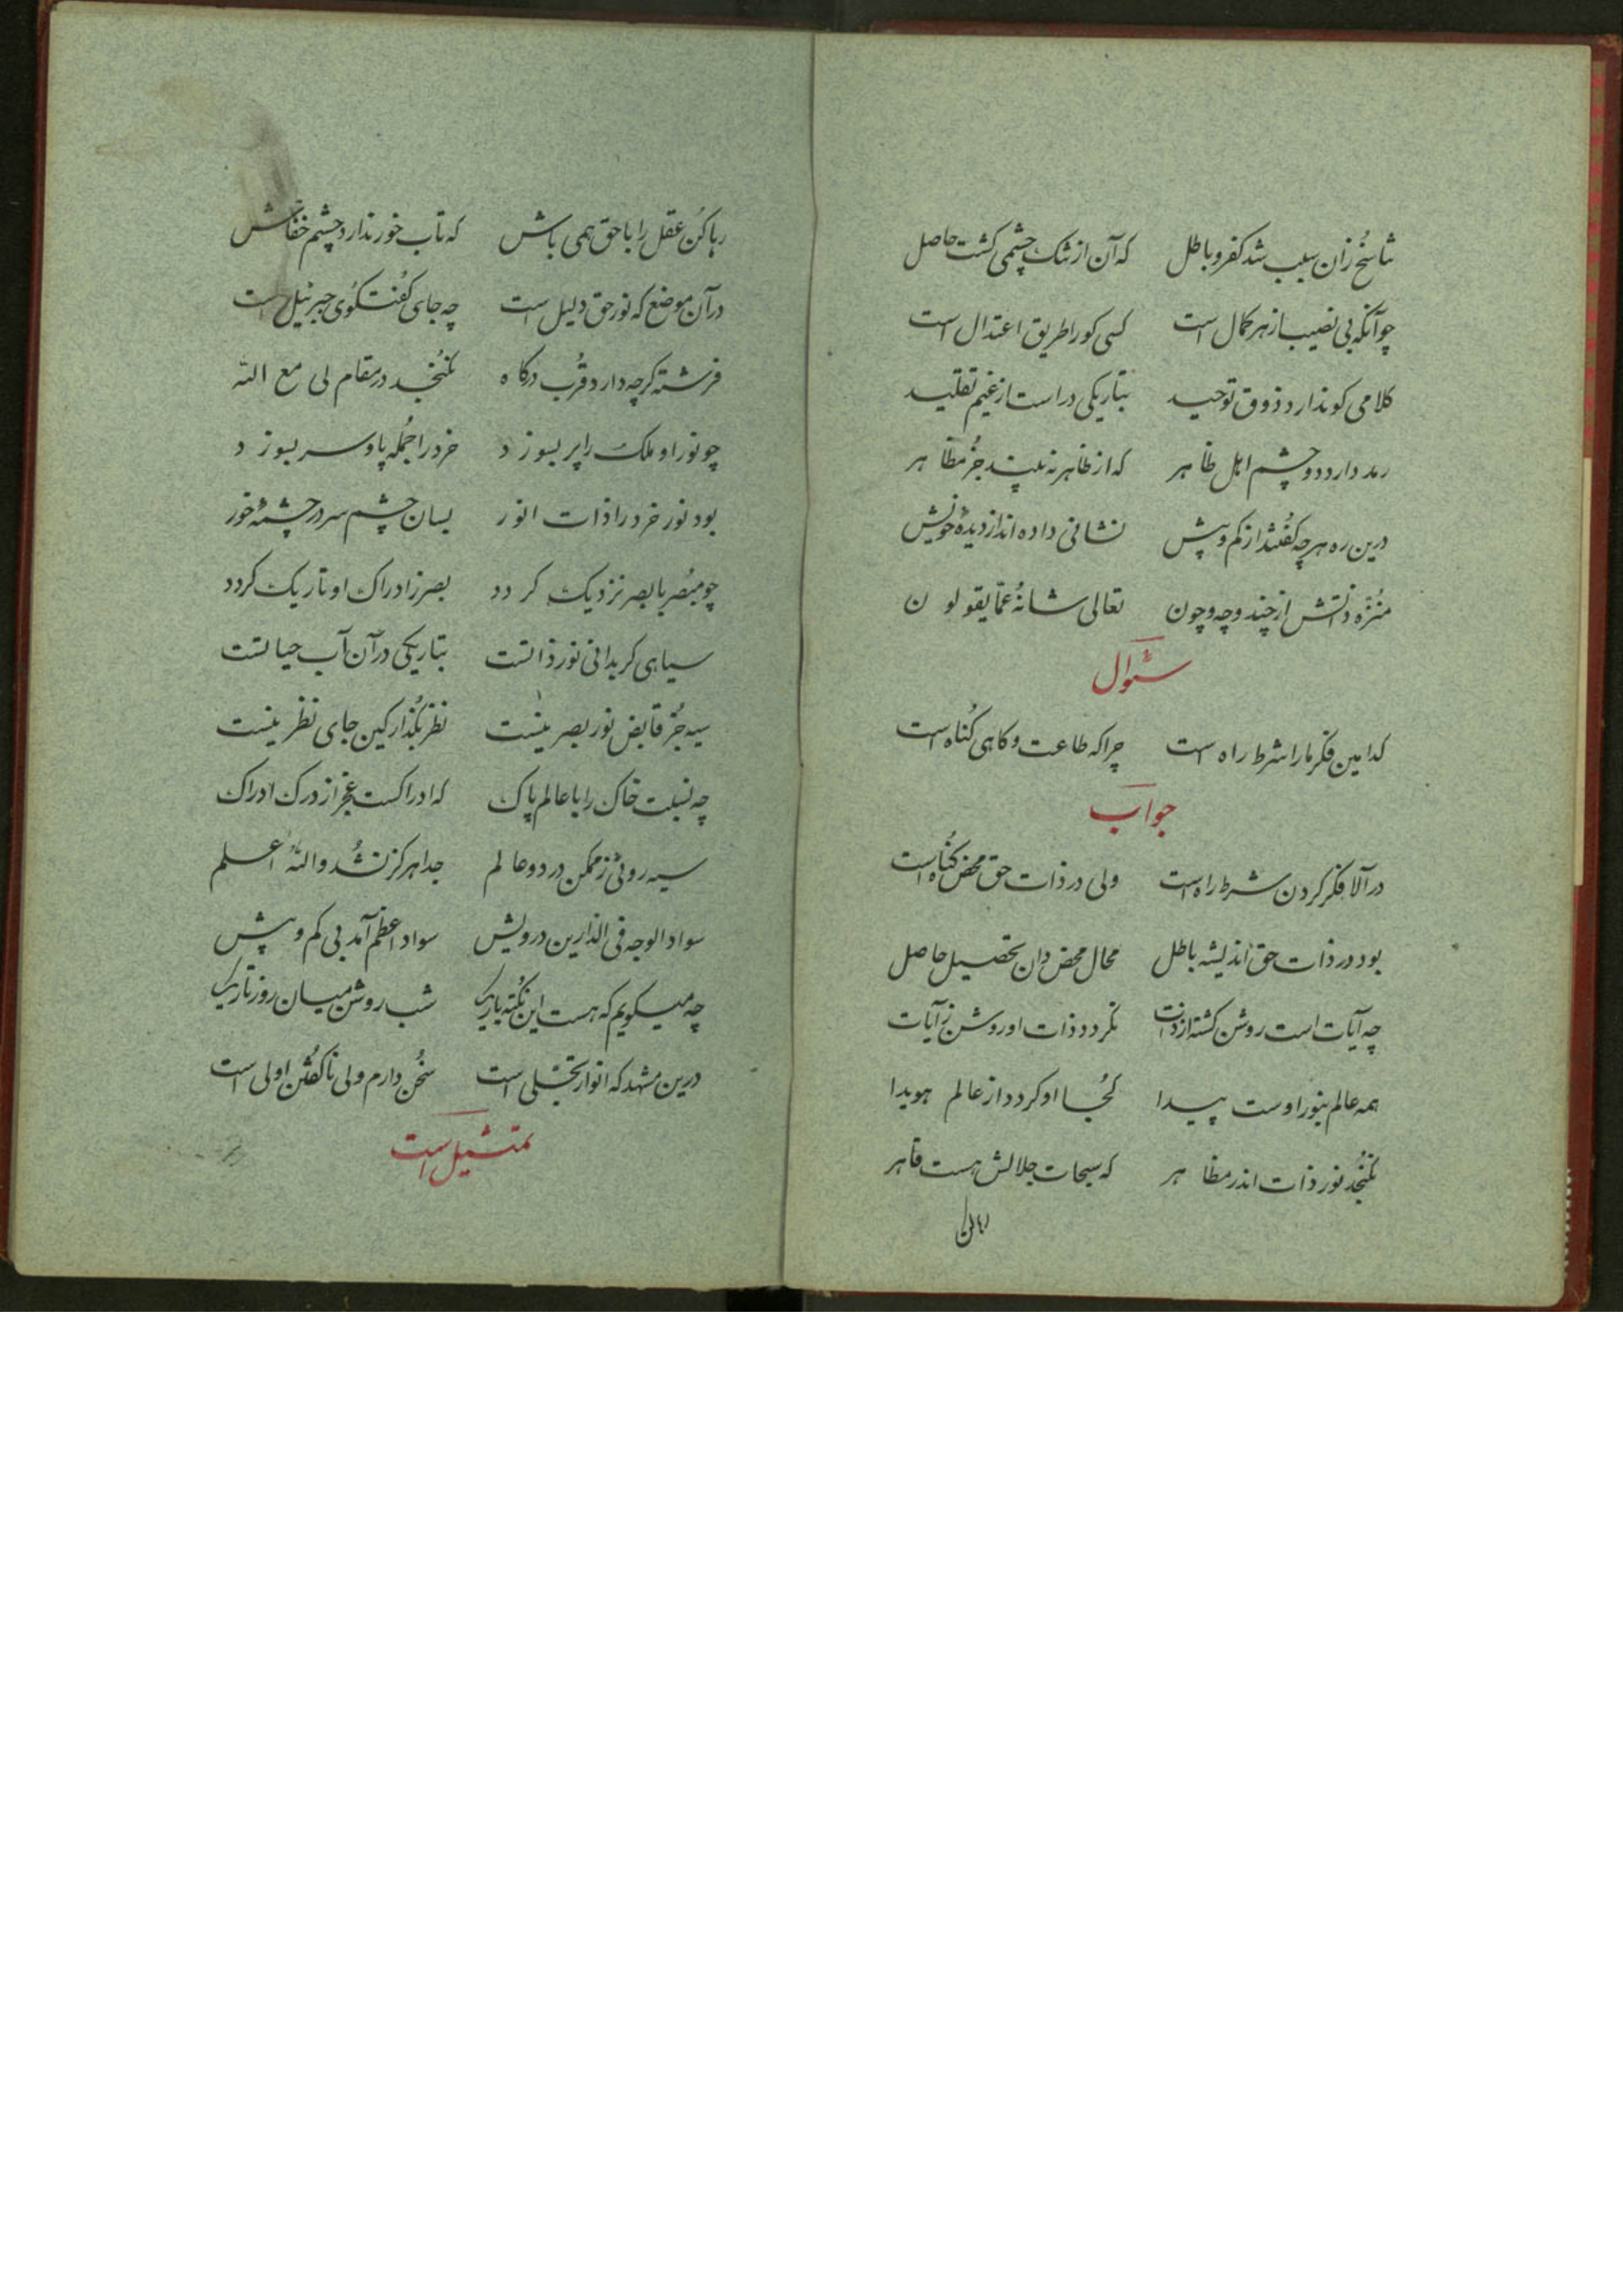 تناسخ زان سبب شد کفر و باطل که آن از تنک چشمی کشت حاصل
چو آنکه بی نصیب از هر کمال است کسی کو را طریق اعتدال است
کلامی کو ندارد ذوق توحید بتاریکی در است از غیم تقلید
رمد دارد دو چشم اهل ظاهر که از ظاهر نه بیند جز مظاهر
درین ره هر چه کفتند از کم و بیش نشانی داده اند از دیدهٔ خویش
منزه ذاتش از چند و چه و چون تعالی شانهٔ عما یقولون
سئوال
کدامین فکر ما را شرط راه است چرا که طاعت و کاهی کناه است
جواب
در آلا فکر کردن شرط راه است ولی در ذات حق محض کناه است
بود در ذات حق اندیشه باطل محال محض دان تحصیل حاصل
چه آیات است روشن کشته از ذات نکردد ذات او روشن ز آیات
همه عالم بنور اوست پیدا کجا او کردد از عالم هویدا
نکنجد نور ذات اندر مظاهر که سبحات جلالش هست قاهر
رها کن
رها کن عقل را با حق همی باش که تاب خور ندارد چشم خفاش
در آن موضع که نور حق دلیل است چه جای کفتکوی جبرئیل است
فرشته کرچه دارد قرب درکاه نکنجد در مقام لی مع الله
چو نور او ملک را پر بسوزد خرد را جمله پا و سر بسوزد
بود نور خرد در ذات انور بسان چشم سر در چشمهٔ خور
چو مبصر با بصر نزدیک کردد بصر ز ادراک او تاریک کردد
سیاهی کر بدانی نور ذاتست بتاریکی در آن آب حیاتست
سیه جز قابض نور بصر نیست نظر بکذار کین جای نظر نیست
چه نسبت خاک را با عالم پاک که ادراکست عجز از درک ادراک
سیه روئی ز ممکن در دو عالم جدا هرکز نشد والله اعلم
سواد الوجه فی الدارین درویش سواد اعظم آمد بی کم و بیش
چه میکویم که هست این نکته باریک شب روشن میان روز تاریک
درین مشهد که انوار تجلی است سخن دارم ولی ناکفتن اولی است
تمثیل است